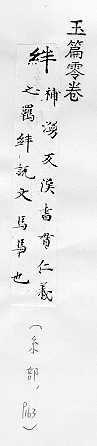 玉篇零卷
絆
補 反漢書貫仁義
之羈絆說文馬馽也
(糸部, p163)